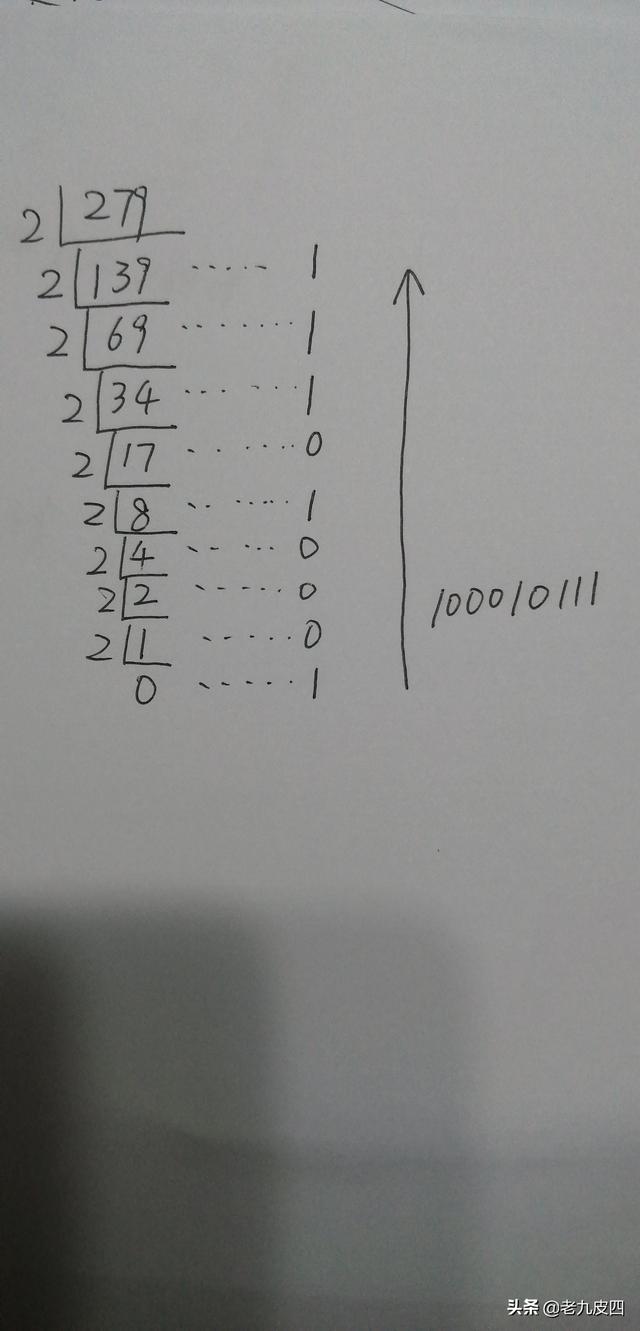 2 279
2 139 ..... 1
2 69 ....... 1
2 34 ... .... 1
2 17 . ..... 0
2 8 .. ..... 1
2 4 .. ... 0
2 2 ...... 0
2 1 ...... 0
0 ...... 1
100010111
头条 @老九皮四